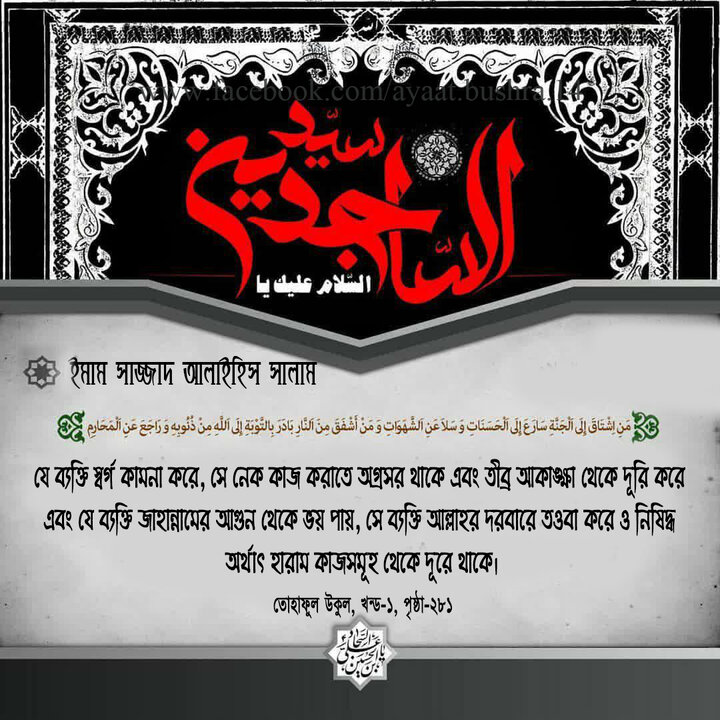 www.facebook.com/ayaat.bushra
سيد
الساجدين
السّلام عليك يا
ইমাম সাজ্জাদ আলাইহিস সালাম
مَنِ اشْتَاقَ إِلَى الْجَنَّةِ سَارَعَ إِلَى الْحَسَنَاتِ وَ سَلَا عَنِ الشَّهَوَاتِ وَ مَنْ أَشْفَقَ مِنَ النَّارِ بَادَرَ بِالتَّوْبَةِ إِلَى اللَّهِ مِنْ ذُنُوبِهِ وَ رَاجَعَ عَنِ الْمَحَارِمِ
যে ব্যক্তি স্বর্গ কামনা করে, সে নেক কাজ করাতে অগ্রসর থাকে এবং তীব্র আকাঙ্ক্ষা থেকে দূরি করে
এবং যে ব্যক্তি জাহান্নামের আগুন থেকে ভয় পায়, সে ব্যক্তি আল্লাহর দরবারে তওবা করে ও নিষিদ্ধ
অর্থাৎ হারাম কাজসমূহ থেকে দূরে থাকে।
তোহাফুল উকুল, খন্ড-১, পৃষ্ঠা-২৮১